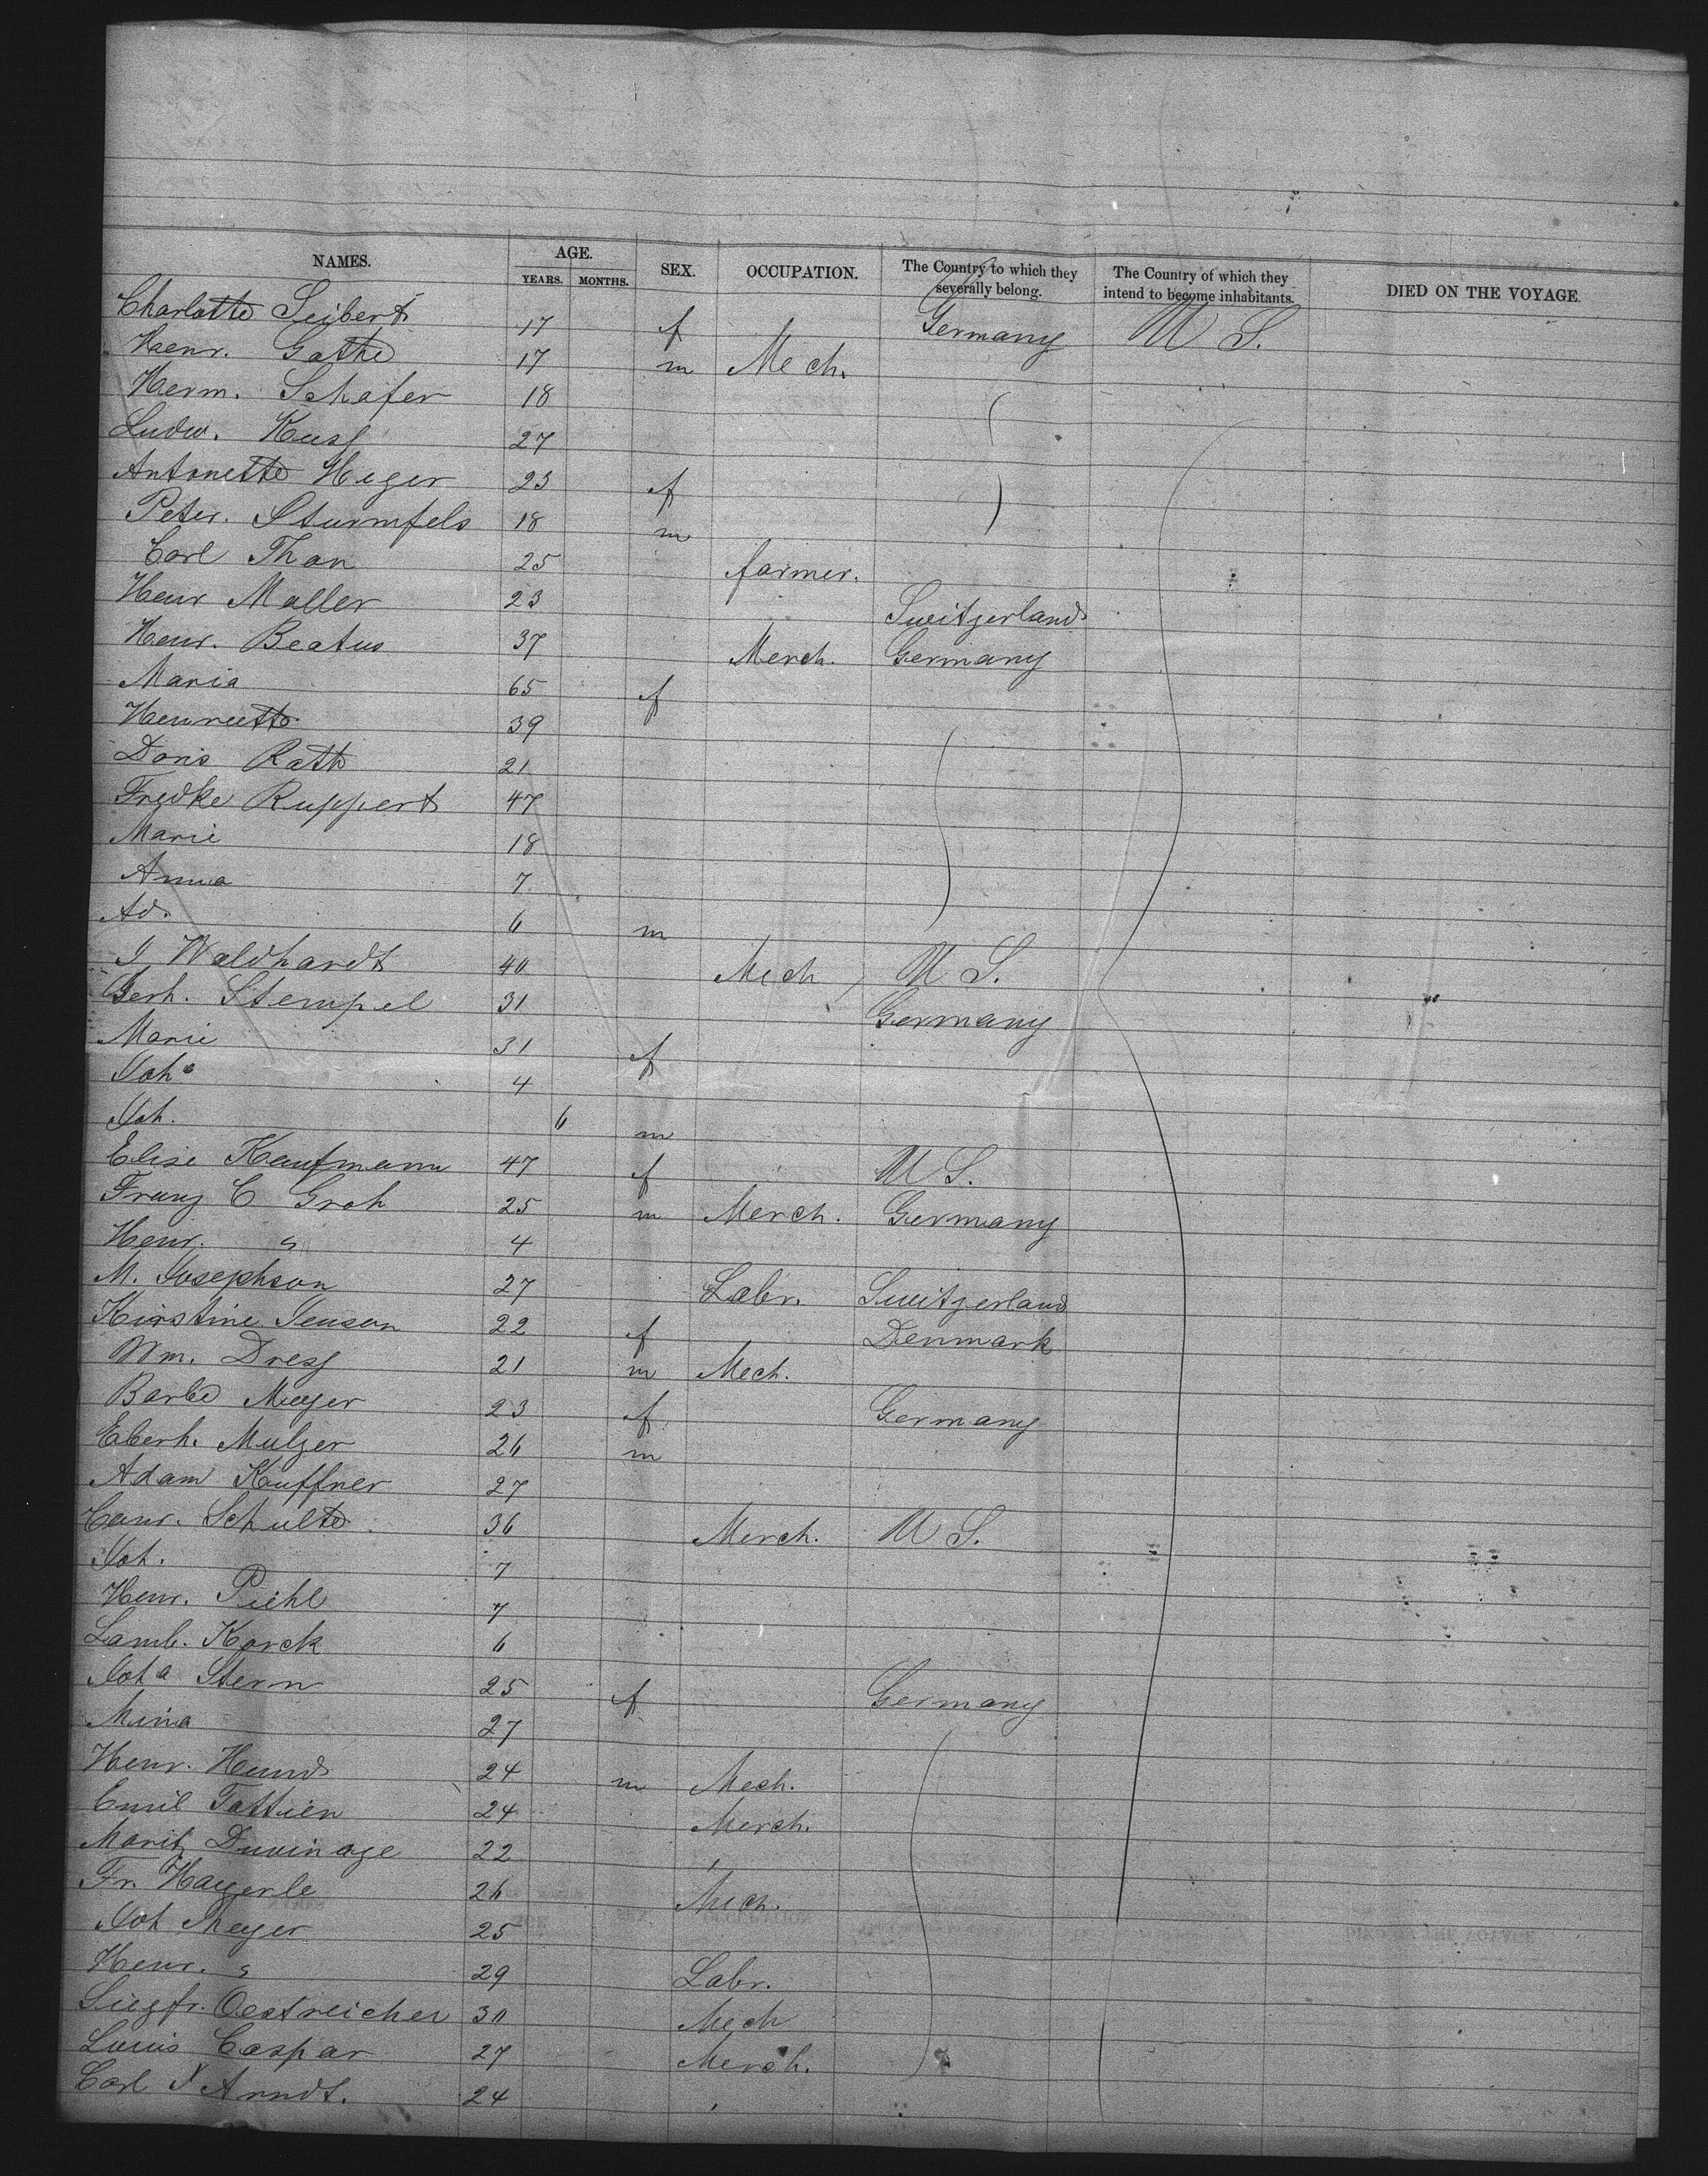 NAMES. AGE. YEARS. MONTHS. SEX. OCCUPATION. The Country to which they severally belong. The Country of which they intend to become inhabitants. DIED ON THE VOYAGE.
Charlotte Seibert 17 f Germany U S.
Henr. Gothe 17 m Mech.
Herm. Schafer 18
Ludw. Kuss 27
Antonette Heger 23 f
Peter. Sturmfels 18 m
Carl Than 25 farmer.
Henr Maller 23 Switzerland
Henr. Beatus 37 Merch. Germany
Maria 65 f
Henriette 39
Doris Rath 21
Fredke Ruppert 47
Marie 18
Anna 7
Ad. 6 m
J Waldhardt 40 Mech U S.
Gerh. Stempel 31 Germany
Marie 31 f
Joha 4
Joh. 6 m
Elise Kaufmann 47 f U S.
Franz C Groh 25 m Merch. Germany
Henr. " 4
M. Josephson 27 Labr. Switzerland
Kirstine Jensen 22 f Denmark
Wm. Dress 21 m Mech.
Barbe Meyer 23 f Germany
Eberh. Mulzer 26 m
Adam Kuffner 27
Schulte 36 Merch. U S.
Joh. 7
Henr. Piehl 7
Lamb. Korck 6
Joha Stern 25 f Germany
Mina 27
Henr. Hund 24 m Mech.
Emil Tattien 24 Merch.
Moritz Duvinage 22 "
Fr. Hayerle 26 Mech.
Joh Meyer 25
Henr. " 29 Labr.
Siegfr. Oestreicher 30 Mech
Louis Caspar 27 Merch.
Carl J Arndt. 24 "